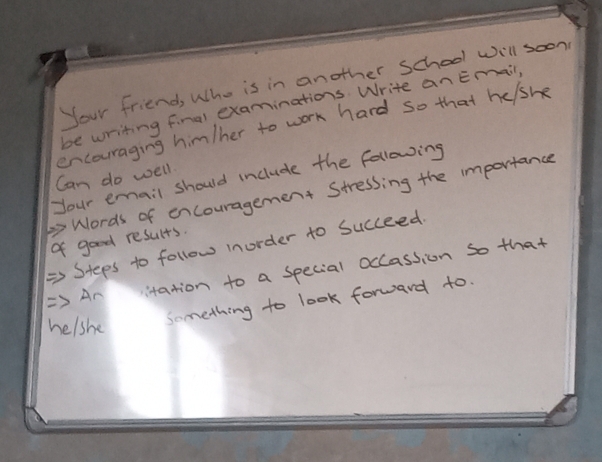 Your friend, who is in another school will soon
be writing final examinations. Write an Email,
encouraging him/her to work hard so that he/she
Can do well.
Your email should include the following
=> Words of encouragement stressing the importance
of good results.
=> Steps to follow inorder to succeed.
=> An to a special occassion so that
he/she something to look forward to.